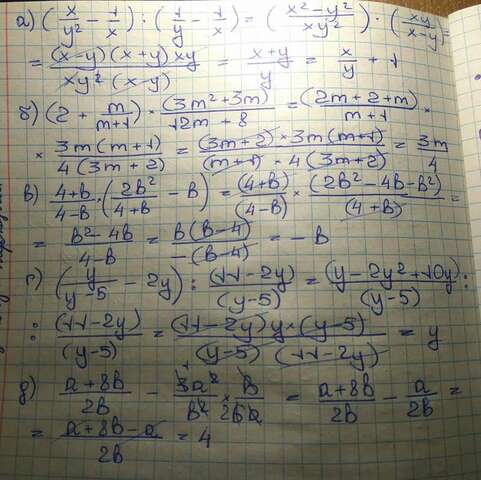 а) (x/y² - 1/x) : (1/y - 1/x) = (x² - y²/xy²) · (xy/x-y) =
= (x-y)(x+y)xy/xy²(x-y) = x+y/y = x/y + 1
б) (2 + m/m+1) × (3m² + 3m)/12m + 8 = (2m + 2 + m)/m+1 ×
× 3m(m+1)/4(3m+2) = (3m+2) × 3m(m+1)/(m+1) × 4(3m+2) = 3m/4
в) 4+b/4-b · (2b²/4+b - b) = (4+b)/(4-b) × (2b² - 4b - b²)/(4+b) =
= b² - 4b/4-b = b(b-4)/-(b-4) = -b
г) (y/y-5 - 2y) : (11-2y)/(y-5) = (y - 2y² + 10y)/(y-5) :
: (11-2y)/(y-5) = (11-2y)y × (y-5)/(y-5)(11-2y) = y
д) a+8b/2b - 3a²/b² × b/26a = a+8b/2b - a/2b =
= a+8b-a/2b = 4